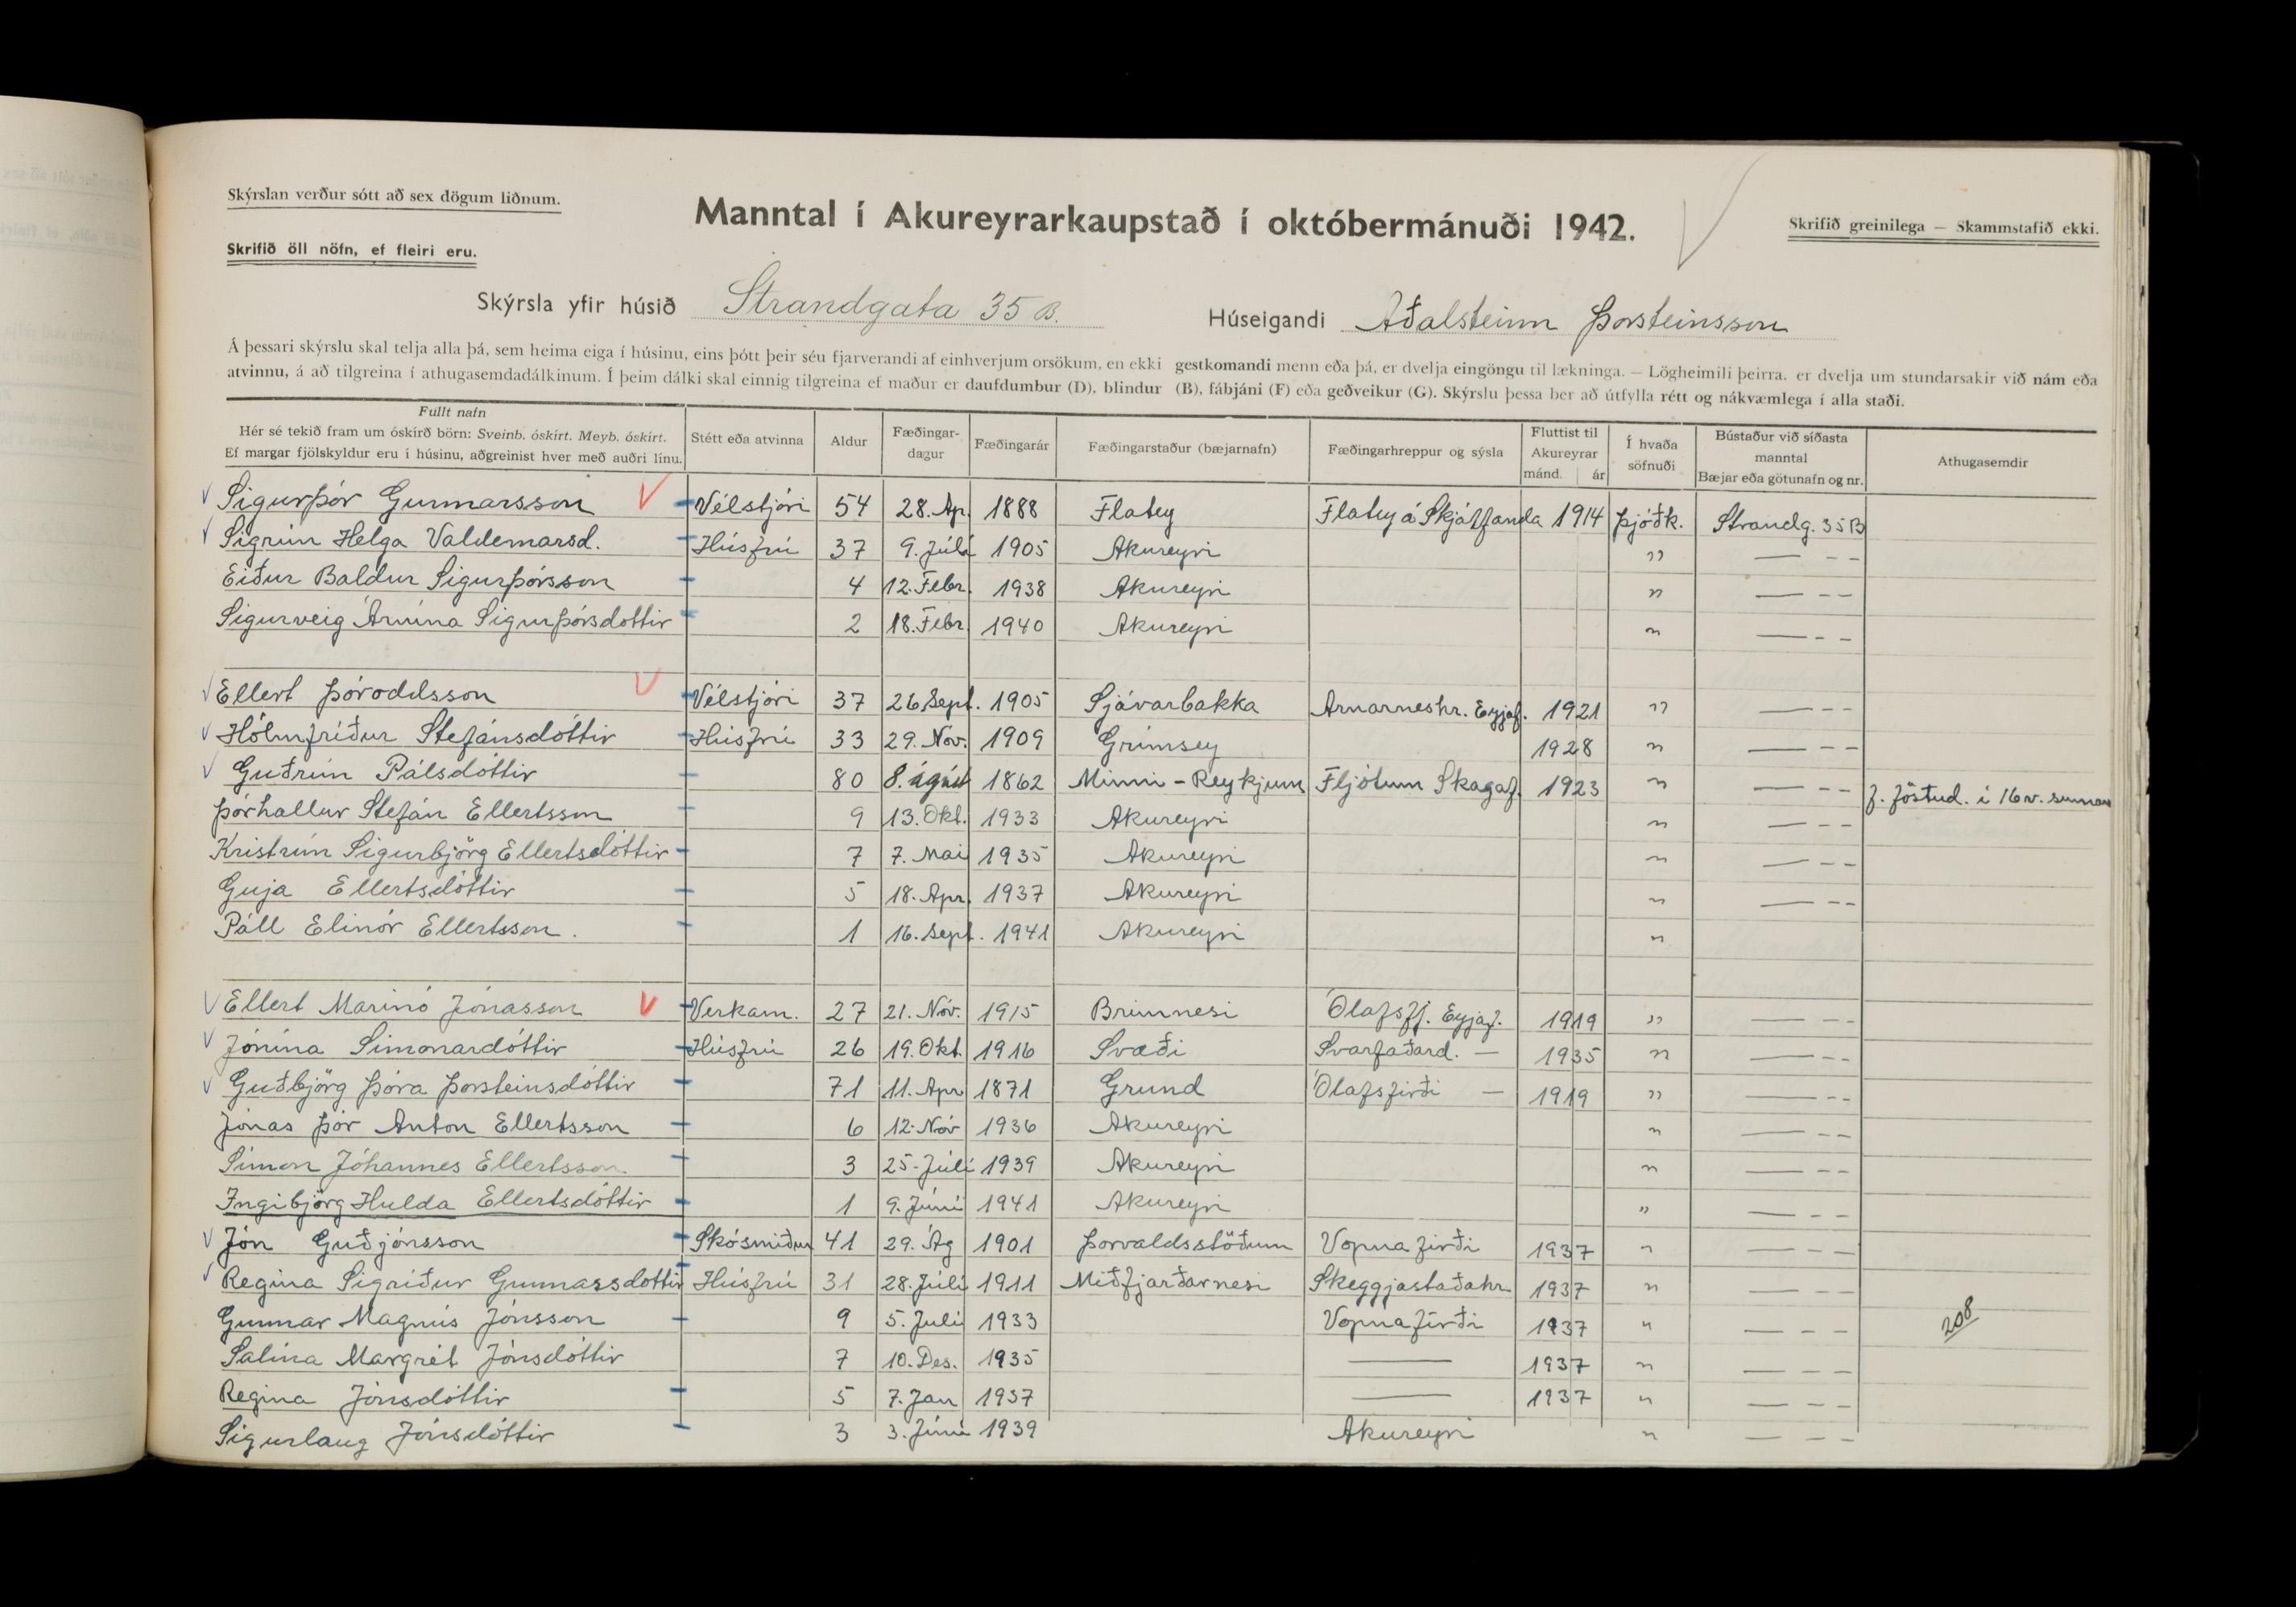 Skýrslan verður sótt að sex dögum liðnum.
Manntal í Akureyrarkaupstað í októbermánuði 1942.
Skrifið greinilega — Skammstafið ekki.
Skrifið öll nöfn, ef fleiri eru.
Skýrsla yfir húsið Strandgata 35 B. Húseigandi Aðalsteinn Þorsteinsson
Á þessari skýrslu skal telja alla þá, sem heima eiga í húsinu, eins þótt þeir séu fjarverandi af einhverjum orsökum, en ekki gestkomandi menn eða þá, er dvelja eingöngu til lækninga. — Lögheimili þeirra, er dvelja um stundarsakir við nám eða
atvinnu, á að tilgreina í athugasemdadálkinum. Í þeim dálki skal einnig tilgreina ef maður er daufdumbur (D), blindur (B), fábjáni (F) eða geðveikur (G). Skýrslu þessa ber að útfylla rétt og nákvæmlega í alla staði.
Fullt nafn
Hér sé tekið fram um óskírð börn: Sveinb. óskírt. Meyb. óskírt.
Ef margar fjölskyldur eru í húsinu, aðgreinist hver með auðri línu.
Stétt eða atvinna
Aldur
Fæðingar-
dagur
Fæðingarár
Fæðingarstaður (bæjarnafn)
Fæðingarhreppur og sýsla
Fluttist til
Akureyrar
mánd. ár
Í hvaða
söfnuði
Bústaður við síðasta
manntal
Bæjar eða götunafn og nr.
Athugasemdir
Sigurþór Gunnarsson Vélstjóri 54 28. Ap. 1888 Flatey Flatey á Skjálfanda 1914 Þjóðk. Strandg. 35B
Sigrún Helga Valdemarsd. Húsfrú 37 9. Júlí 1905 Akureyri " — - -
Eiður Baldur Sigurþórsson 4 12. Febr. 1938 Akureyri " — - -
Sigurveig Árnína Sigurþórsdottir 2 18. Febr. 1940 Akureyri " — - -
Ellert Þóroddsson Vélstjóri 37 26 Sept. 1905 Sjávarbakka Arnarneshr. Eyjaf. 1921 " — - -
Hólmfríður Stefánsdóttir Húsfrú 33 29. Nóv. 1909 Grímsey 1928 " — - -
Guðrún Pálsdóttir 80 8. ágúst 1862 Minni-Reykjum Fljótum Skagaf. 1923 " — - - f. föstud. í 16 v. sumars
Þórhallur Stefán Ellertsson 9 13. Okt. 1933 Akureyri " — - -
Kristrún Sigurbjörg Ellertsdóttir 7 7. Mai 1935 Akureyri " — - -
Guja Ellertsdóttir 5 18. Apr. 1937 Akureyri " — - -
Páll Elinór Ellertsson. 1 16. Sept. 1941 Akureyri "
Ellert Marinó Jónasson Verkam. 27 21. Nóv. 1915 Brimnesi Ólafsfj. Eyjaf. 1919 " — - -
Jónína Símonardóttir Húsfrú 26 19. Okt. 1916 Svæði Svarfaðard. — 1935 " — - -
Guðbjörg Þóra Þorsteinsdóttir 71 11. Apr 1871 Grund Ólafsfirði — 1919 " — - -
Jónas Þór Anton Ellertsson 6 12. Nóv 1936 Akureyri " — - -
Símon Jóhannes Ellertsson 3 25. Júlí 1939 Akureyri " — - -
Ingibjörg Hulda Ellertsdóttir 1 9. Júní 1941 Akureyri " — - -
Jón Guðjónsson Skósmiður 41 29. Ág 1901 Þorvaldsstöðum Vopnafirði 1937 " — - -
Regina Sigríður Gunnarsdottir Húsfrú 31 28. Júlí 1911 Miðfjarðarnesi Skeggjastaðahr 1937 " — - -
Gunnar Magnús Jónsson 9 5. Júlí 1933 Vopnafirði 1937 " — - -
Salína Margrét Jónsdóttir 7 10. Des. 1935 — 1937 " — - -
Regína Jónsdóttir 5 7. Jan 1937 — 1937 " — - -
Sigurlaug Jónsdóttir 3 3. Júní 1939 Akureyri " — - -
208